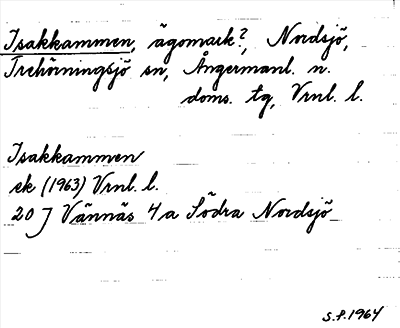 Isakkammen, ägomark?, Nordsjö,
Trehörningsjö sn, Ångermanl. n.
doms. tg, Vrnl. l.
Isakkammen
ek (1963) Vrnl. l.
20 J Vännäs 4a Södra Nordsjö
S.P. 1964